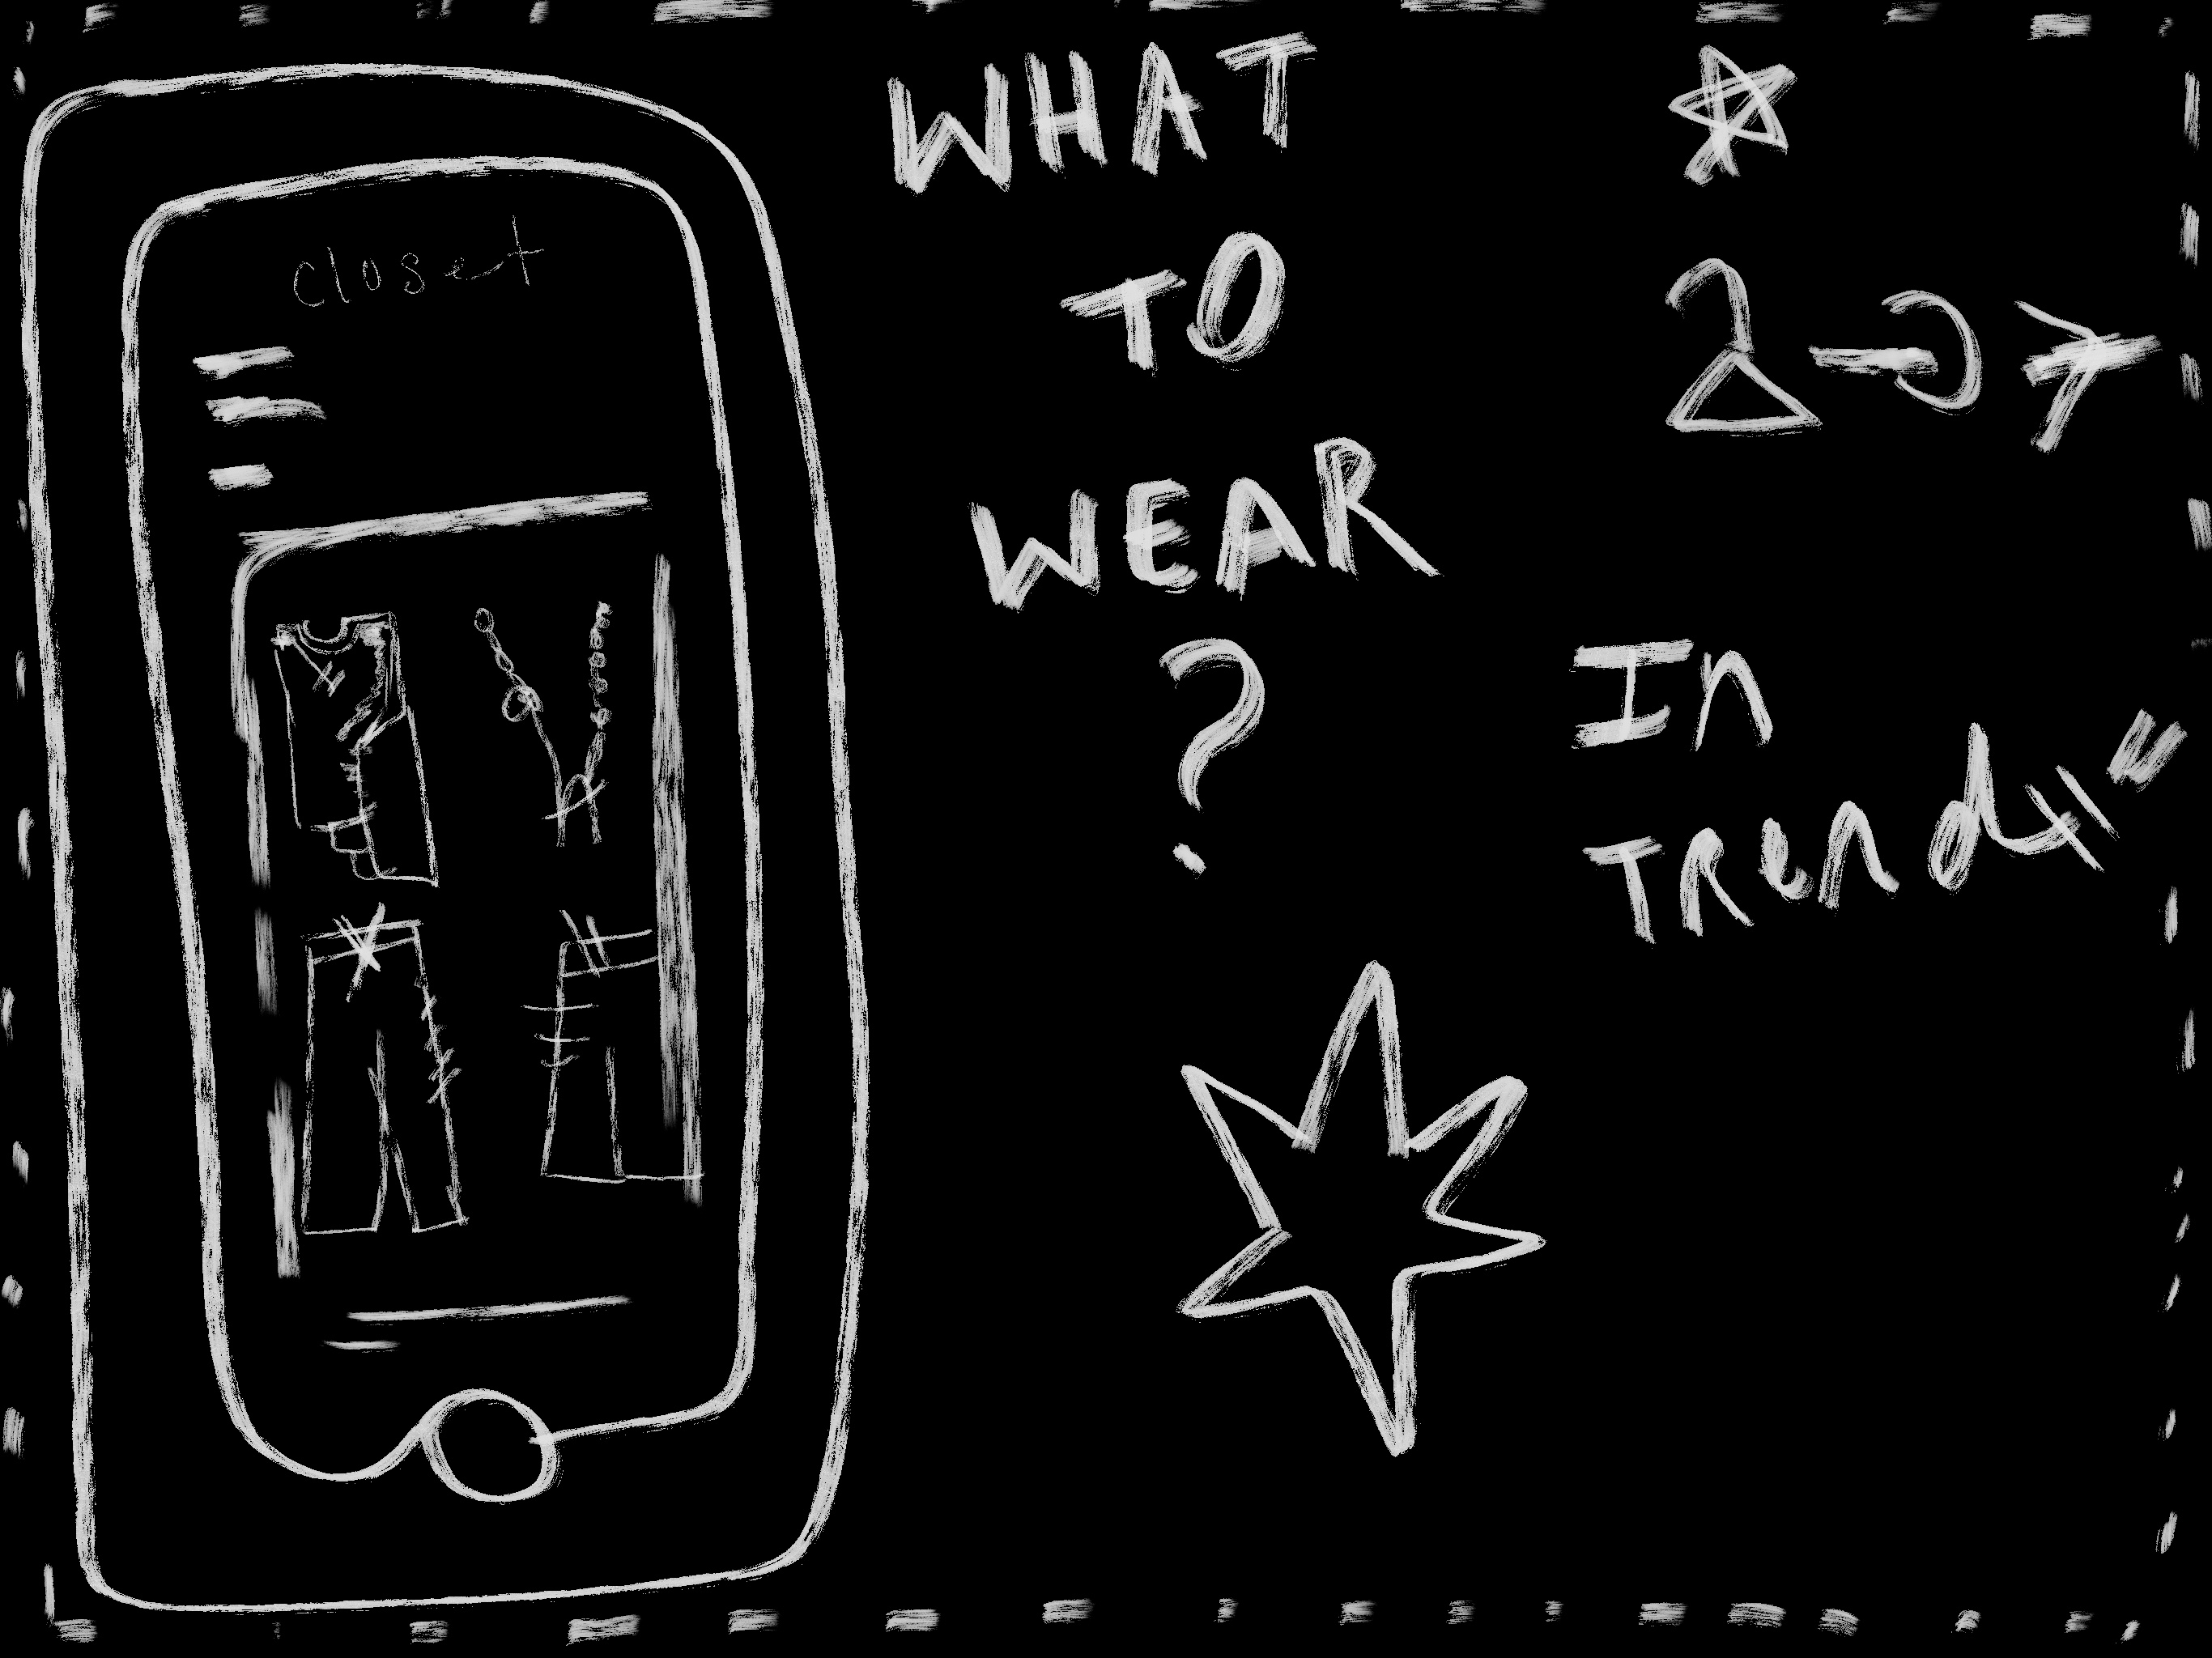 closet
WHAT
TO
WEAR
?
In
TRend